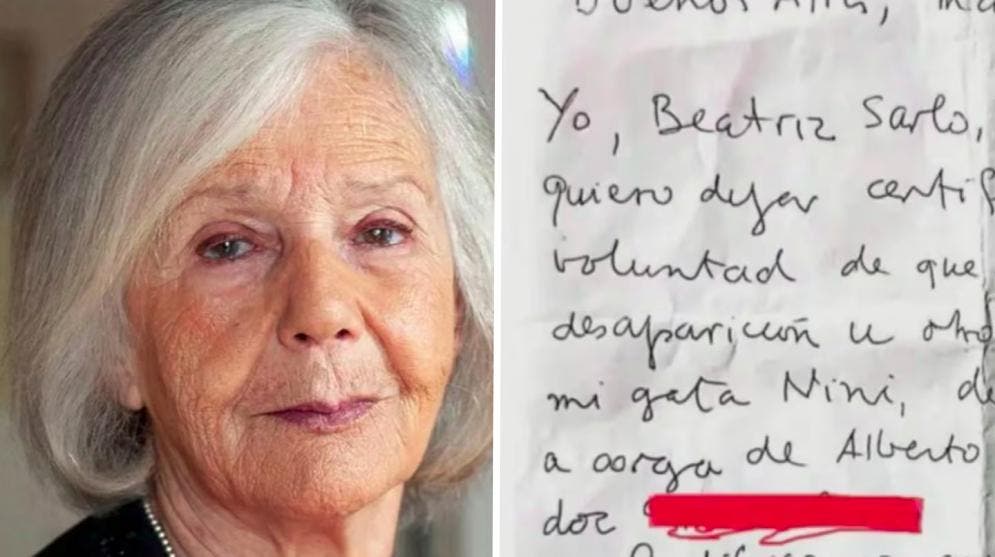 Buenos Aires, ma
Yo, Beatriz Sarlo,
quiero dejar certif
voluntad de que
desaparición u otro
mi gata Nini, de
a carga de Alberto
dor